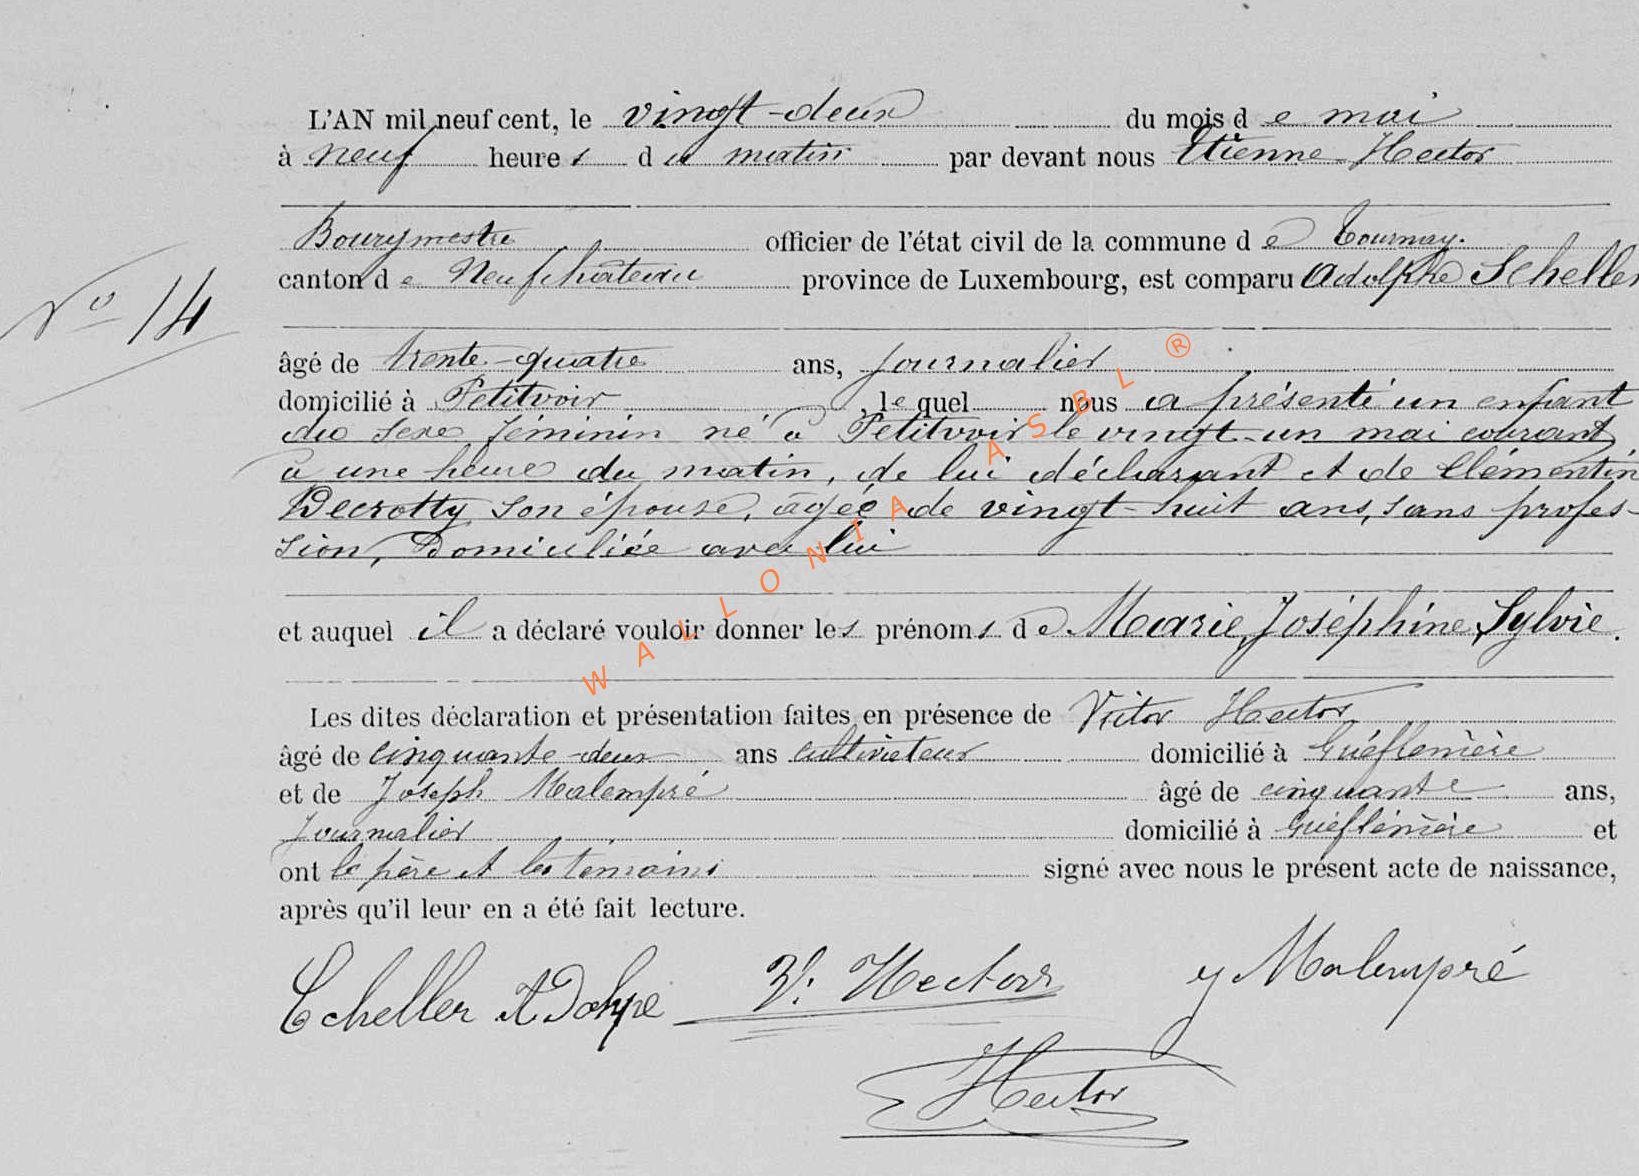 L'AN mil neuf cent, le vingt-deux du mois de mai
à neuf heures du matin par devant nous Etienne Hector
Bourgmestre officier de l'état civil de la commune de Tournay.
canton de Neufchâteau province de Luxembourg, est comparu Adolphe Scheller
N° 14
âgé de trente-quatre ans, journalier
domicilié à Petitvoir, lequel nous a présenté un enfant
du sexe féminin né à Petitvoir le vingt-un mai courant,
à une heure du matin, de lui déclarant et de Clémentin
Decrotty son épouse, âgée de vingt-huit ans, sans profes-
sion, Domiciliée avec lui
et auquel il a déclaré vouloir donner les prénoms de Marie, Joséphine, Sylvie.
Les dites déclaration et présentation faites en présence de Victor Hector
âgé de cinquante-deux ans cultivateur domicilié à
et de Joseph Malempré âgé de cinquante ans,
Journalier domicilié à et
ont le père et les témoins signé avec nous le présent acte de naissance,
après qu'il leur en a été fait lecture.
Scheller Adolphe V. Hector J Malempré
Hector
WALLONIA ASBL ®